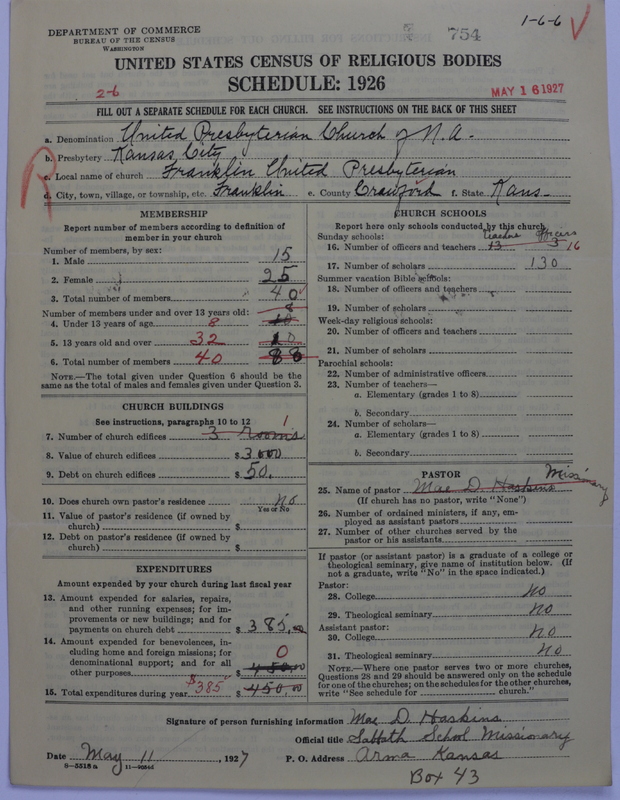 1-6-6 √
DEPARTMENT OF COMMERCE
BUREAU OF THE CENSUS
WASHINGTON
754
UNITED STATES CENSUS OF RELIGIOUS BODIES
SCHEDULE: 1926
2-6
MAY 16 1927
FILL OUT A SEPARATE SCHEDULE FOR EACH CHURCH. SEE INSTRUCTIONS ON THE BACK OF THIS SHEET
a. Denomination United Presbyterian Church of N.A.
b. Presbytery Kansas City
c. Local name of church Franklin United Presbyterian
d. City, town, village, or township, etc. Franklin e. County Crawford f. State Kans
MEMBERSHIP
Report number of members according to definition of
member in your church
Number of members, by sex:
1. Male 15
2. Female 25
3. Total number of members 40
Number of members under and over 13 years old:
4. Under 13 years of age 8
5. 13 years old and over 32
6. Total number of members 40
NOTE.—The total given under Question 6 should be
the same as the total of males and females given under Question 3.
CHURCH BUILDINGS
See instructions, paragraphs 10 to 12
7. Number of church edifices 3 rooms 1
8. Value of church edifices $ 3000
9. Debt on church edifices $ 50.
10. Does church own pastor's residence No
Yes or No
11. Value of pastor's residence (if owned by
church) $
12. Debt on pastor's residence (if owned by
church) $
EXPENDITURES
Amount expended by your church during last fiscal year
13. Amount expended for salaries, repairs,
and other running expenses; for im-
provements or new buildings; and for
payments on church debt $ 385.00
14. Amount expended for benevolences, in-
cluding home and foreign missions; for
denominational support; and for all
other purposes $ 450.00 0
15. Total expenditures during year $385 $ 450.00
CHURCH SCHOOLS
Report here only schools conducted by this church
Sunday schools: teachers officers
16. Number of officers and teachers 13 3 16
17. Number of scholars 130
Summer vacation Bible schools:
18. Number of officers and teachers
19. Number of scholars
Week-day religious schools:
20. Number of officers and teachers
21. Number of scholars
Parochial schools:
22. Number of administrative officers
23. Number of teachers—
a. Elementary (grades 1 to 8)
b. Secondary
24. Number of scholars—
a. Elementary (grades 1 to 8)
b. Secondary
PASTOR
25. Name of pastor Mae D. Haskins Missionary
(If church has no pastor, write "None")
26. Number of ordained ministers, if any, em-
ployed as assistant pastors
27. Number of other churches served by the
pastor or his assistants
If pastor (or assistant pastor) is a graduate of a college or
theological seminary, give name of institution below. (If
not a graduate, write "No" in the space indicated.)
Pastor:
28. College No
29. Theological seminary No
Assistant pastor:
30. College No
31. Theological seminary No
NOTE.—Where one pastor serves two or more churches,
Questions 28 and 29 should be answered only on the schedule
for one of the churches; on the schedules for the other churches,
write "See schedule for church."
Signature of person furnishing information Mae D. Haskins
Official title Sabbath School Missionary
Date May 11, 1927 P. O. Address Arma Kansas
8—5518 a
Box 43